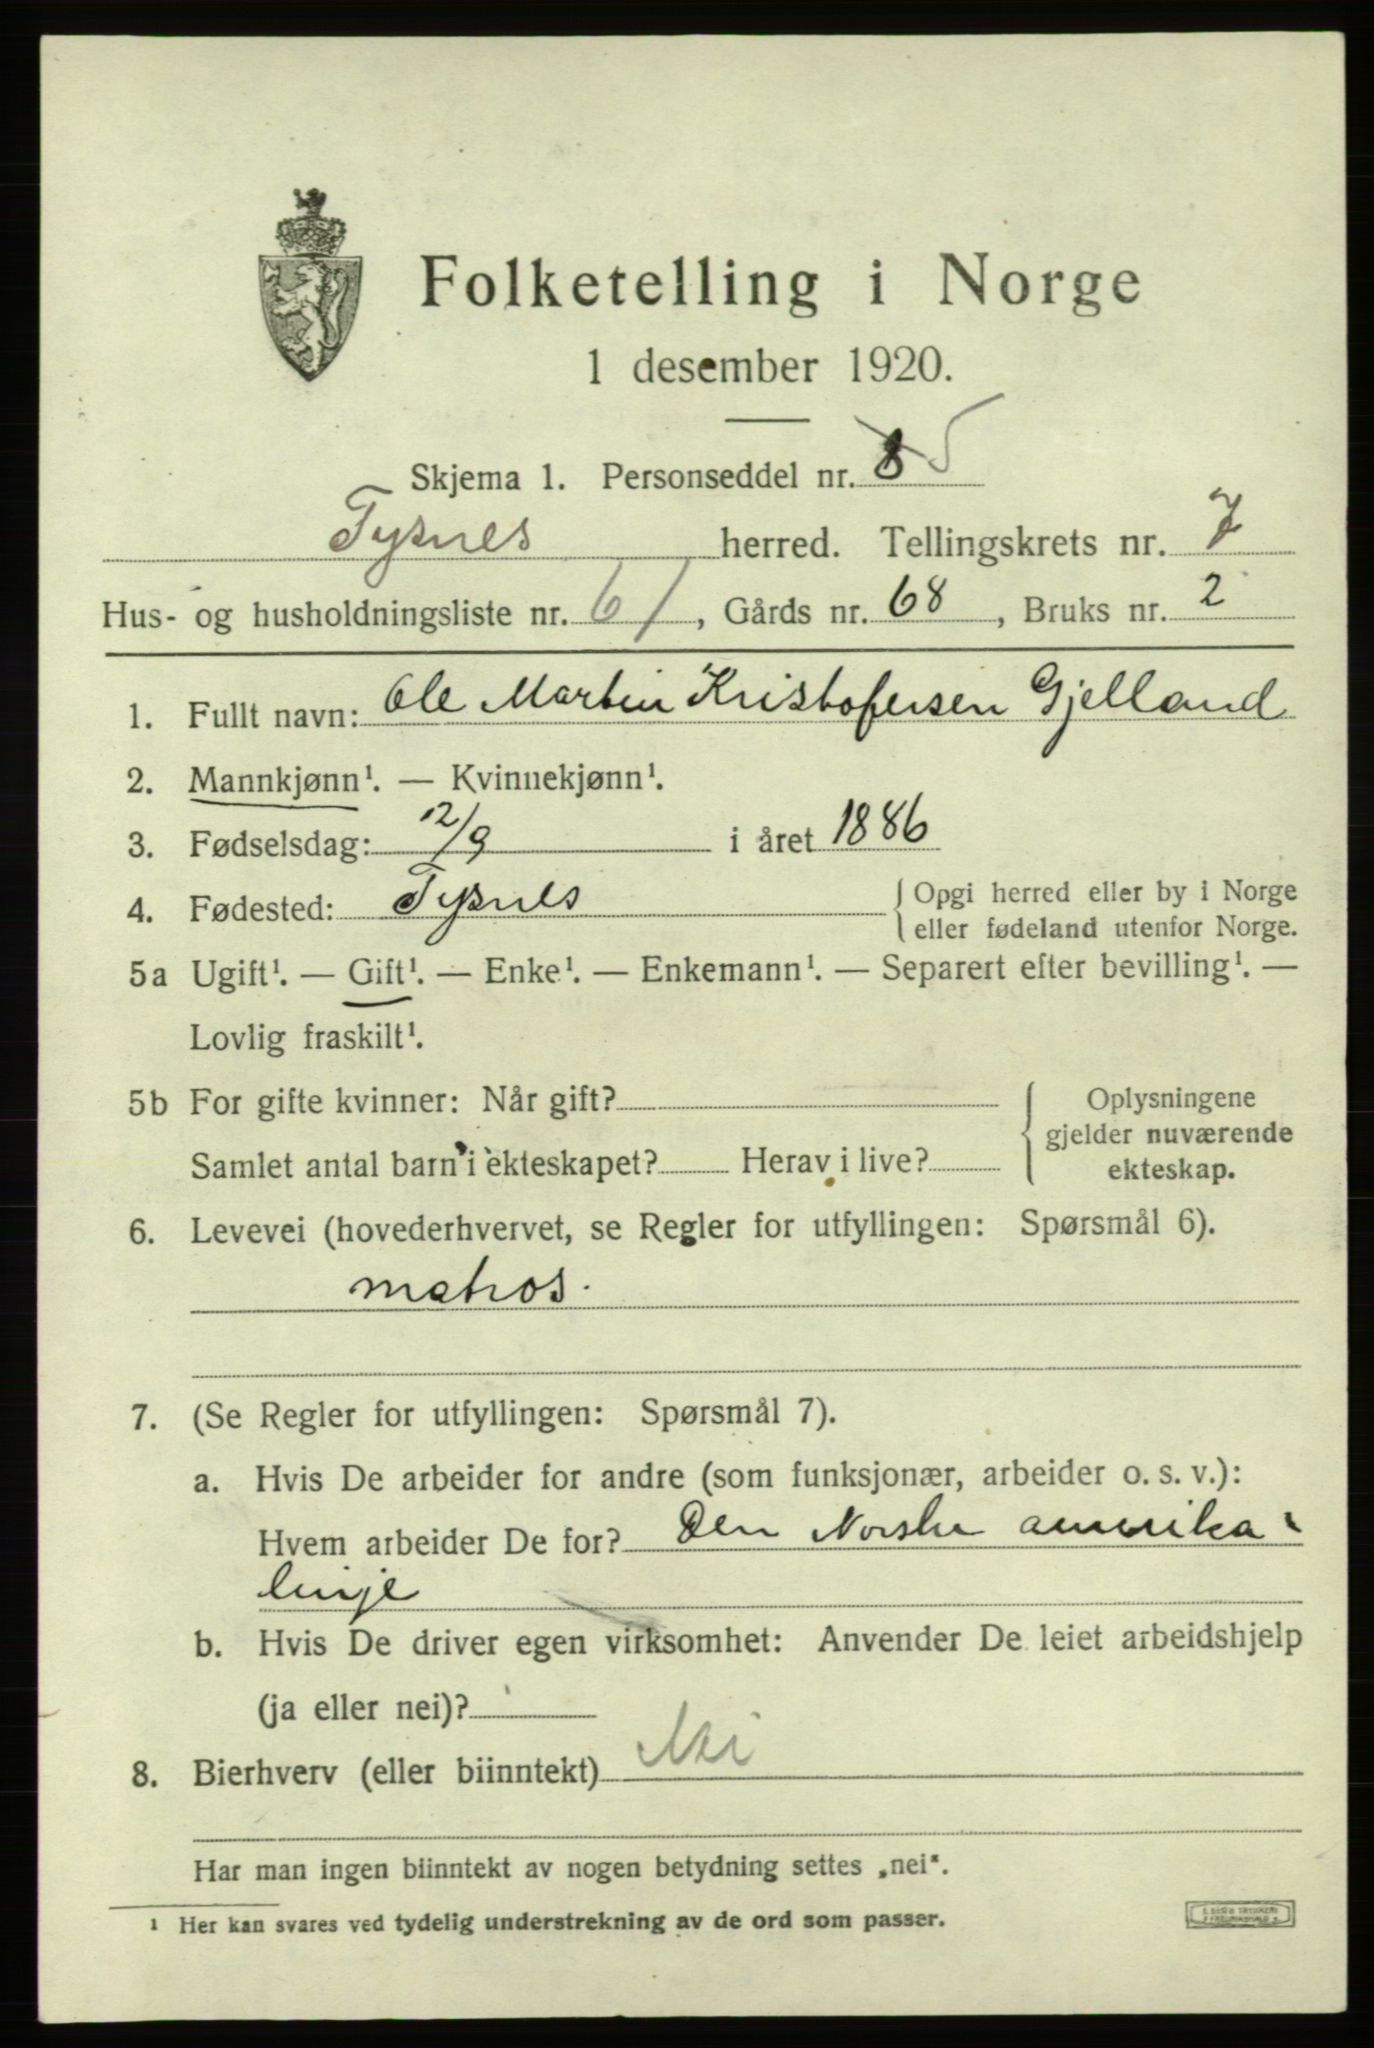 Folketelling i Norge
1 desember 1920.
Skjema 1. Personseddel nr. 8 5
Tysnes herred. Tellingskrets nr. 7
Hus- og husholdningsliste nr. 61, Gårds nr. 68, Bruks nr. 2
1. Fullt navn: Ole Martin Kristofersen Gjelland
2. Mannkjønn¹. — Kvinnekjønn¹.
3. Fødselsdag: 12/9 i året 1886
4. Fødested: Tysnes { Opgi herred eller by i Norge
eller fødeland utenfor Norge.
5a Ugift¹. — Gift¹. — Enke¹. — Enkemann¹. — Separert efter bevilling¹. —
Lovlig fraskilt¹.
5b For gifte kvinner: Når gift? { Oplysningene
gjelder nuværende
Samlet antal barn i ekteskapet? Herav i live?
ekteskap.
6. Levevei (hovederhvervet, se Regler for utfyllingen: Spørsmål 6).
matros.
7. (Se Regler for utfyllingen: Spørsmål 7).
a. Hvis De arbeider for andre (som funksjonær, arbeider o. s. v.):
Hvem arbeider De for? Den Norske amerika-
linje
b. Hvis De driver egen virksomhet: Anvender De leiet arbeidshjelp
(ja eller nei)?
8. Bierhverv (eller biinntekt) Nei
Har man ingen biinntekt av nogen betydning settes „nei“.
¹ Her kan svares ved tydelig understrekning av de ord som passer.